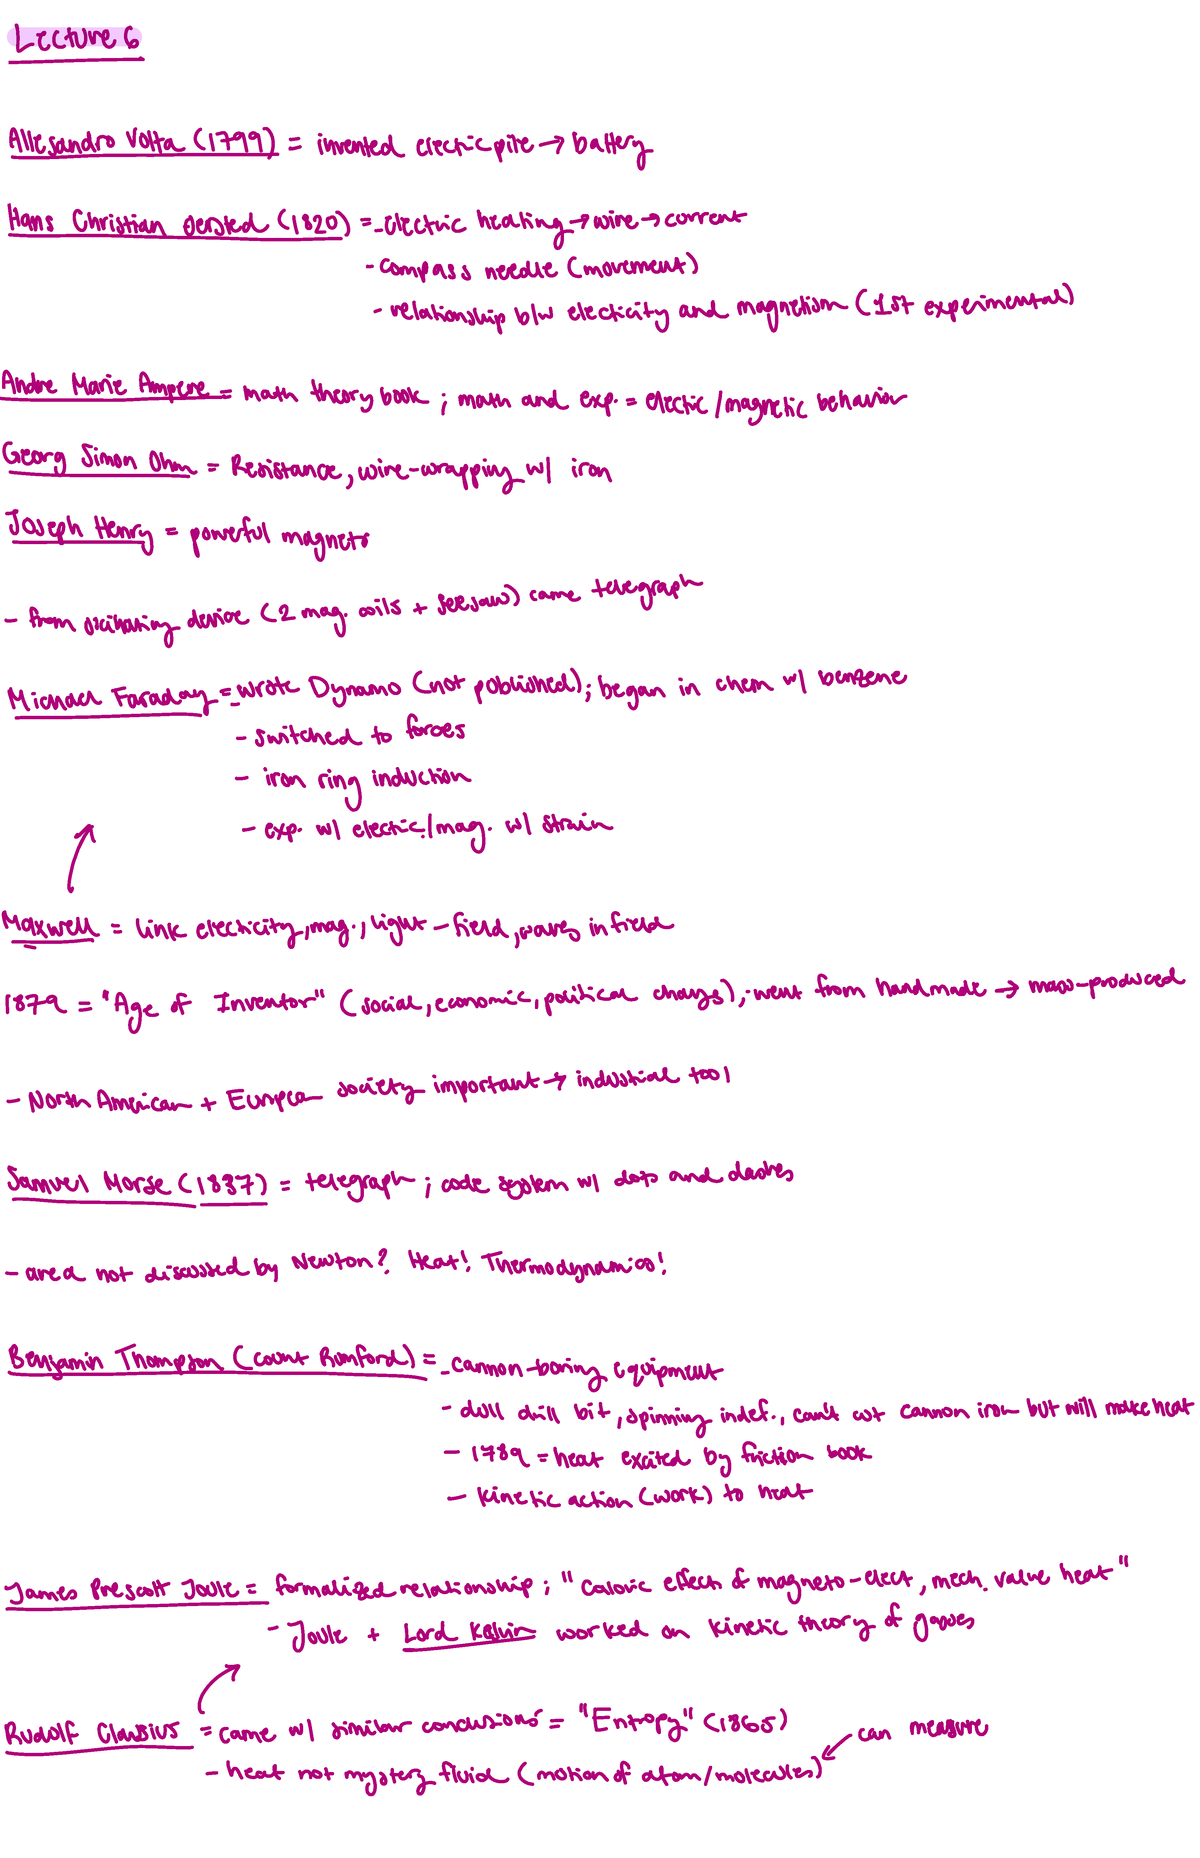 Lecture 6
Allesandro Volta (1799) = invented electric pile → battery
Hans Christian Oersted (1820) = - electric heating → wire → current
- compass needle (movement)
- relationship b/w electicity and magnetism (1st experimental)
Andre Marie Ampere = math theory book ; math and exp. = electic / magnetic behavior
Georg Simon Ohm = Resistance, wire-wrapping w/ iron
Joseph Henry = powerful magnets
- from oscillating device (2 mag. coils + seesaw) came telegraph
Michael Faraday = - wrote Dynamo (not published); began in chem w/ benzene
- switched to forces
- iron ring induction
- exp. w/ electic./mag. w/ strain
Maxwell = link electicity, mag., light - field, waves in field
1879 = "Age of Inventor" (social, economic, political changs); went from handmade → mass-produced
- North American + Europea society important → industial tool
Samuel Morse (1837) = telegraph ; code system w/ dots and dashes
- area not discussed by Newton? Heat! Thermodynamics!
Benjamin Thompson (Count Rumford) = - cannon-boring equipment
- dull drill bit, spinning indef., can't cut cannon iron but will make heat
- 1789 = heat excited by friction book
- kinetic action (work) to heat
James Prescott Joule = formalized relationship ; "Caloric effects of magneto-elect, mech. value heat"
- Joule + Lord Kelvin worked on kinetic theory of gasses
Rudolf Clausius = came w/ similar conclusions = "Entropy" (1865)
can measure
- heat not mystery fluid (motion of atom/molecules)